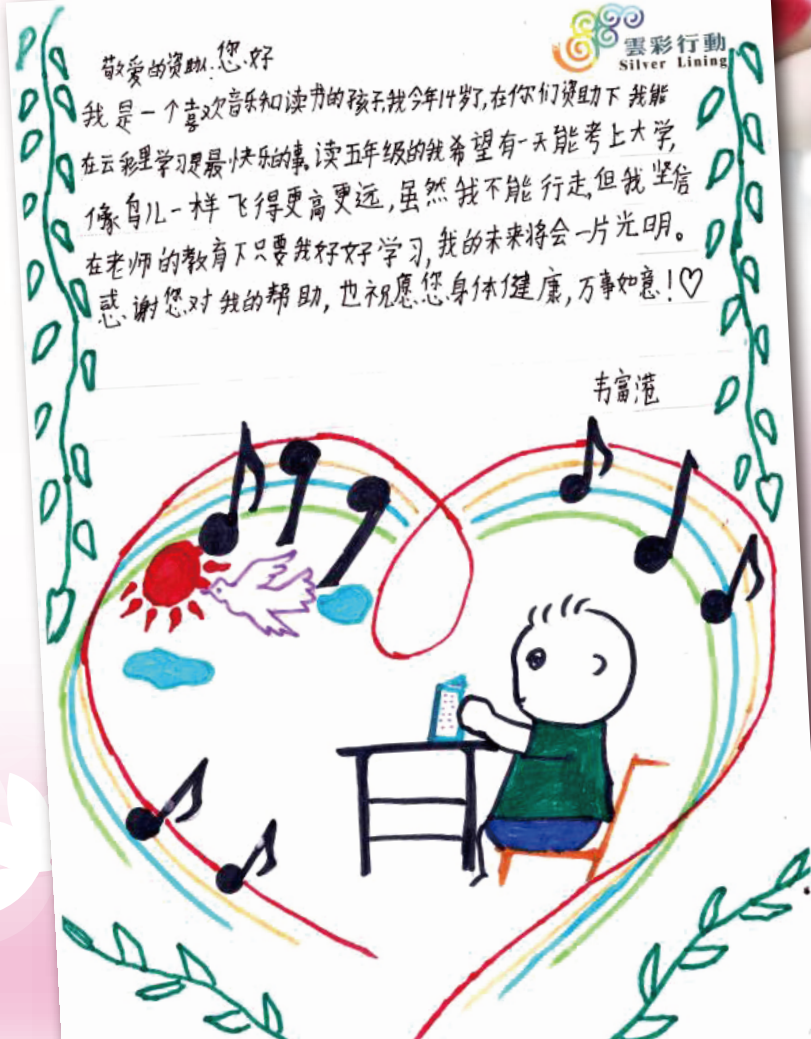 雲彩行動
Silver Lining
敬爱的资助人:您好
我是一个喜欢音乐和读书的孩子,我今年14岁了,在你们资助下我能
在云彩里学习是最快乐的事。读五年级的我希望有一天能考上大学,
像鸟儿一样飞得更高更远,虽然我不能行走,但我坚信
在老师的教育下只要我好好学习,我的未来将会一片光明。
感谢您对我的帮助,也祝愿您身体健康,万事如意!♡
韦富港